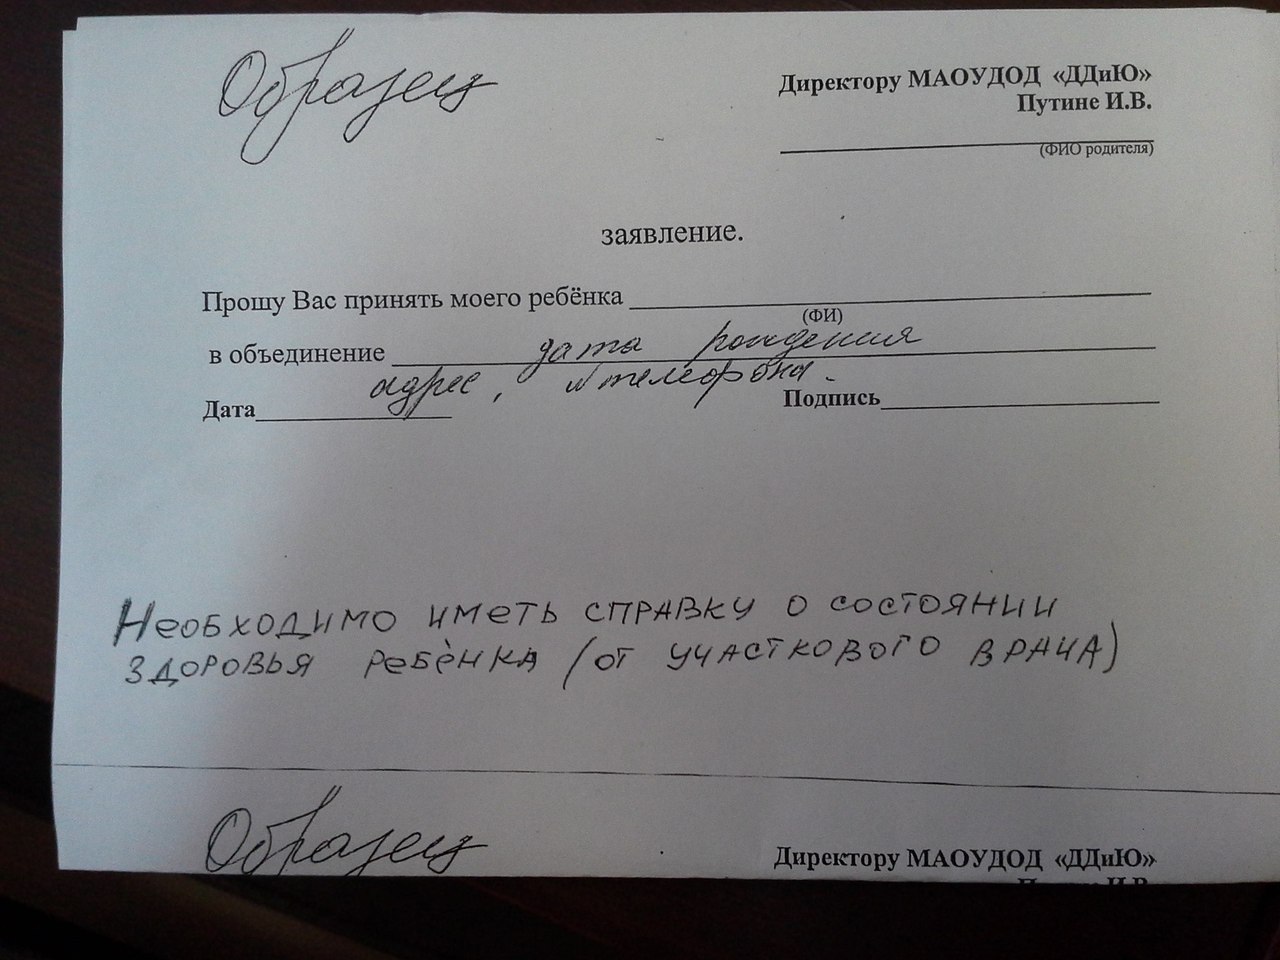 Образец
Директору МАОУДОД «ДДиЮ»
Путине И.В.
(ФИО родителя)
заявление.
Прошу Вас принять моего ребёнка
(ФИ)
в объединение дата рождения
адрес, № телефона.
Дата Подпись
Необходимо иметь справку о состоянии
здоровья ребёнка (от участкового врача)
Образец
Директору МАОУДОД «ДДиЮ»